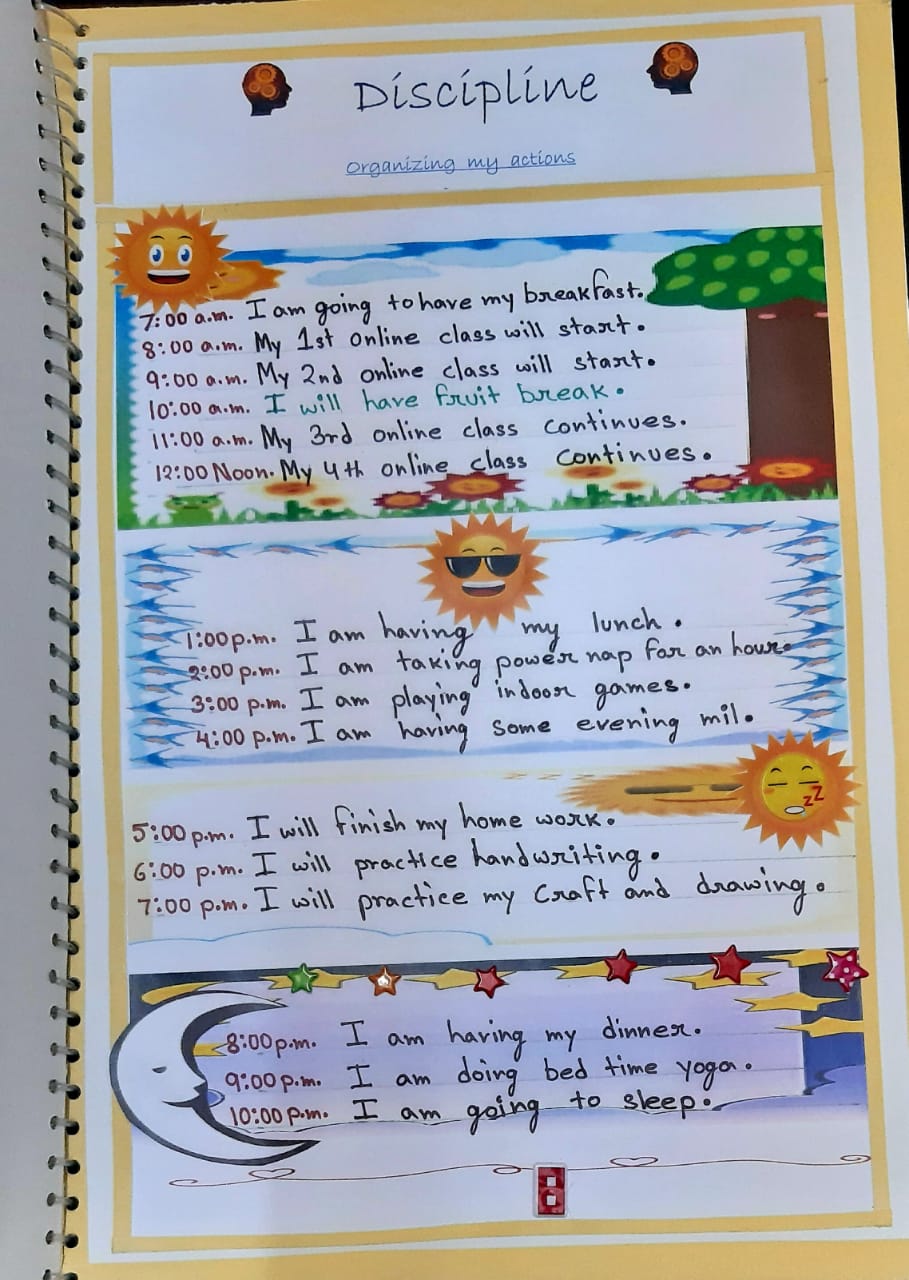 Discipline
Organizing my actions
7:00 a.m. I am going to have my breakfast.
8:00 a.m. My 1st online class will start.
9:00 a.m. My 2nd online class will start.
10:00 a.m. I will have fruit break.
11:00 a.m. My 3rd online class continues.
12:00 Noon. My 4th online class continues.
1:00 p.m. I am having my lunch.
2:00 p.m. I am taking power nap for an hour.
3:00 p.m. I am playing indoor games.
4:00 p.m. I am having some evening mil.
zZ
5:00 p.m. I will finish my home work.
6:00 p.m. I will practice handwriting.
7:00 p.m. I will practice my craft and drawing.
8:00 p.m. I am having my dinner.
9:00 p.m. I am doing bed time yoga.
10:00 p.m. I am going to sleep.
8